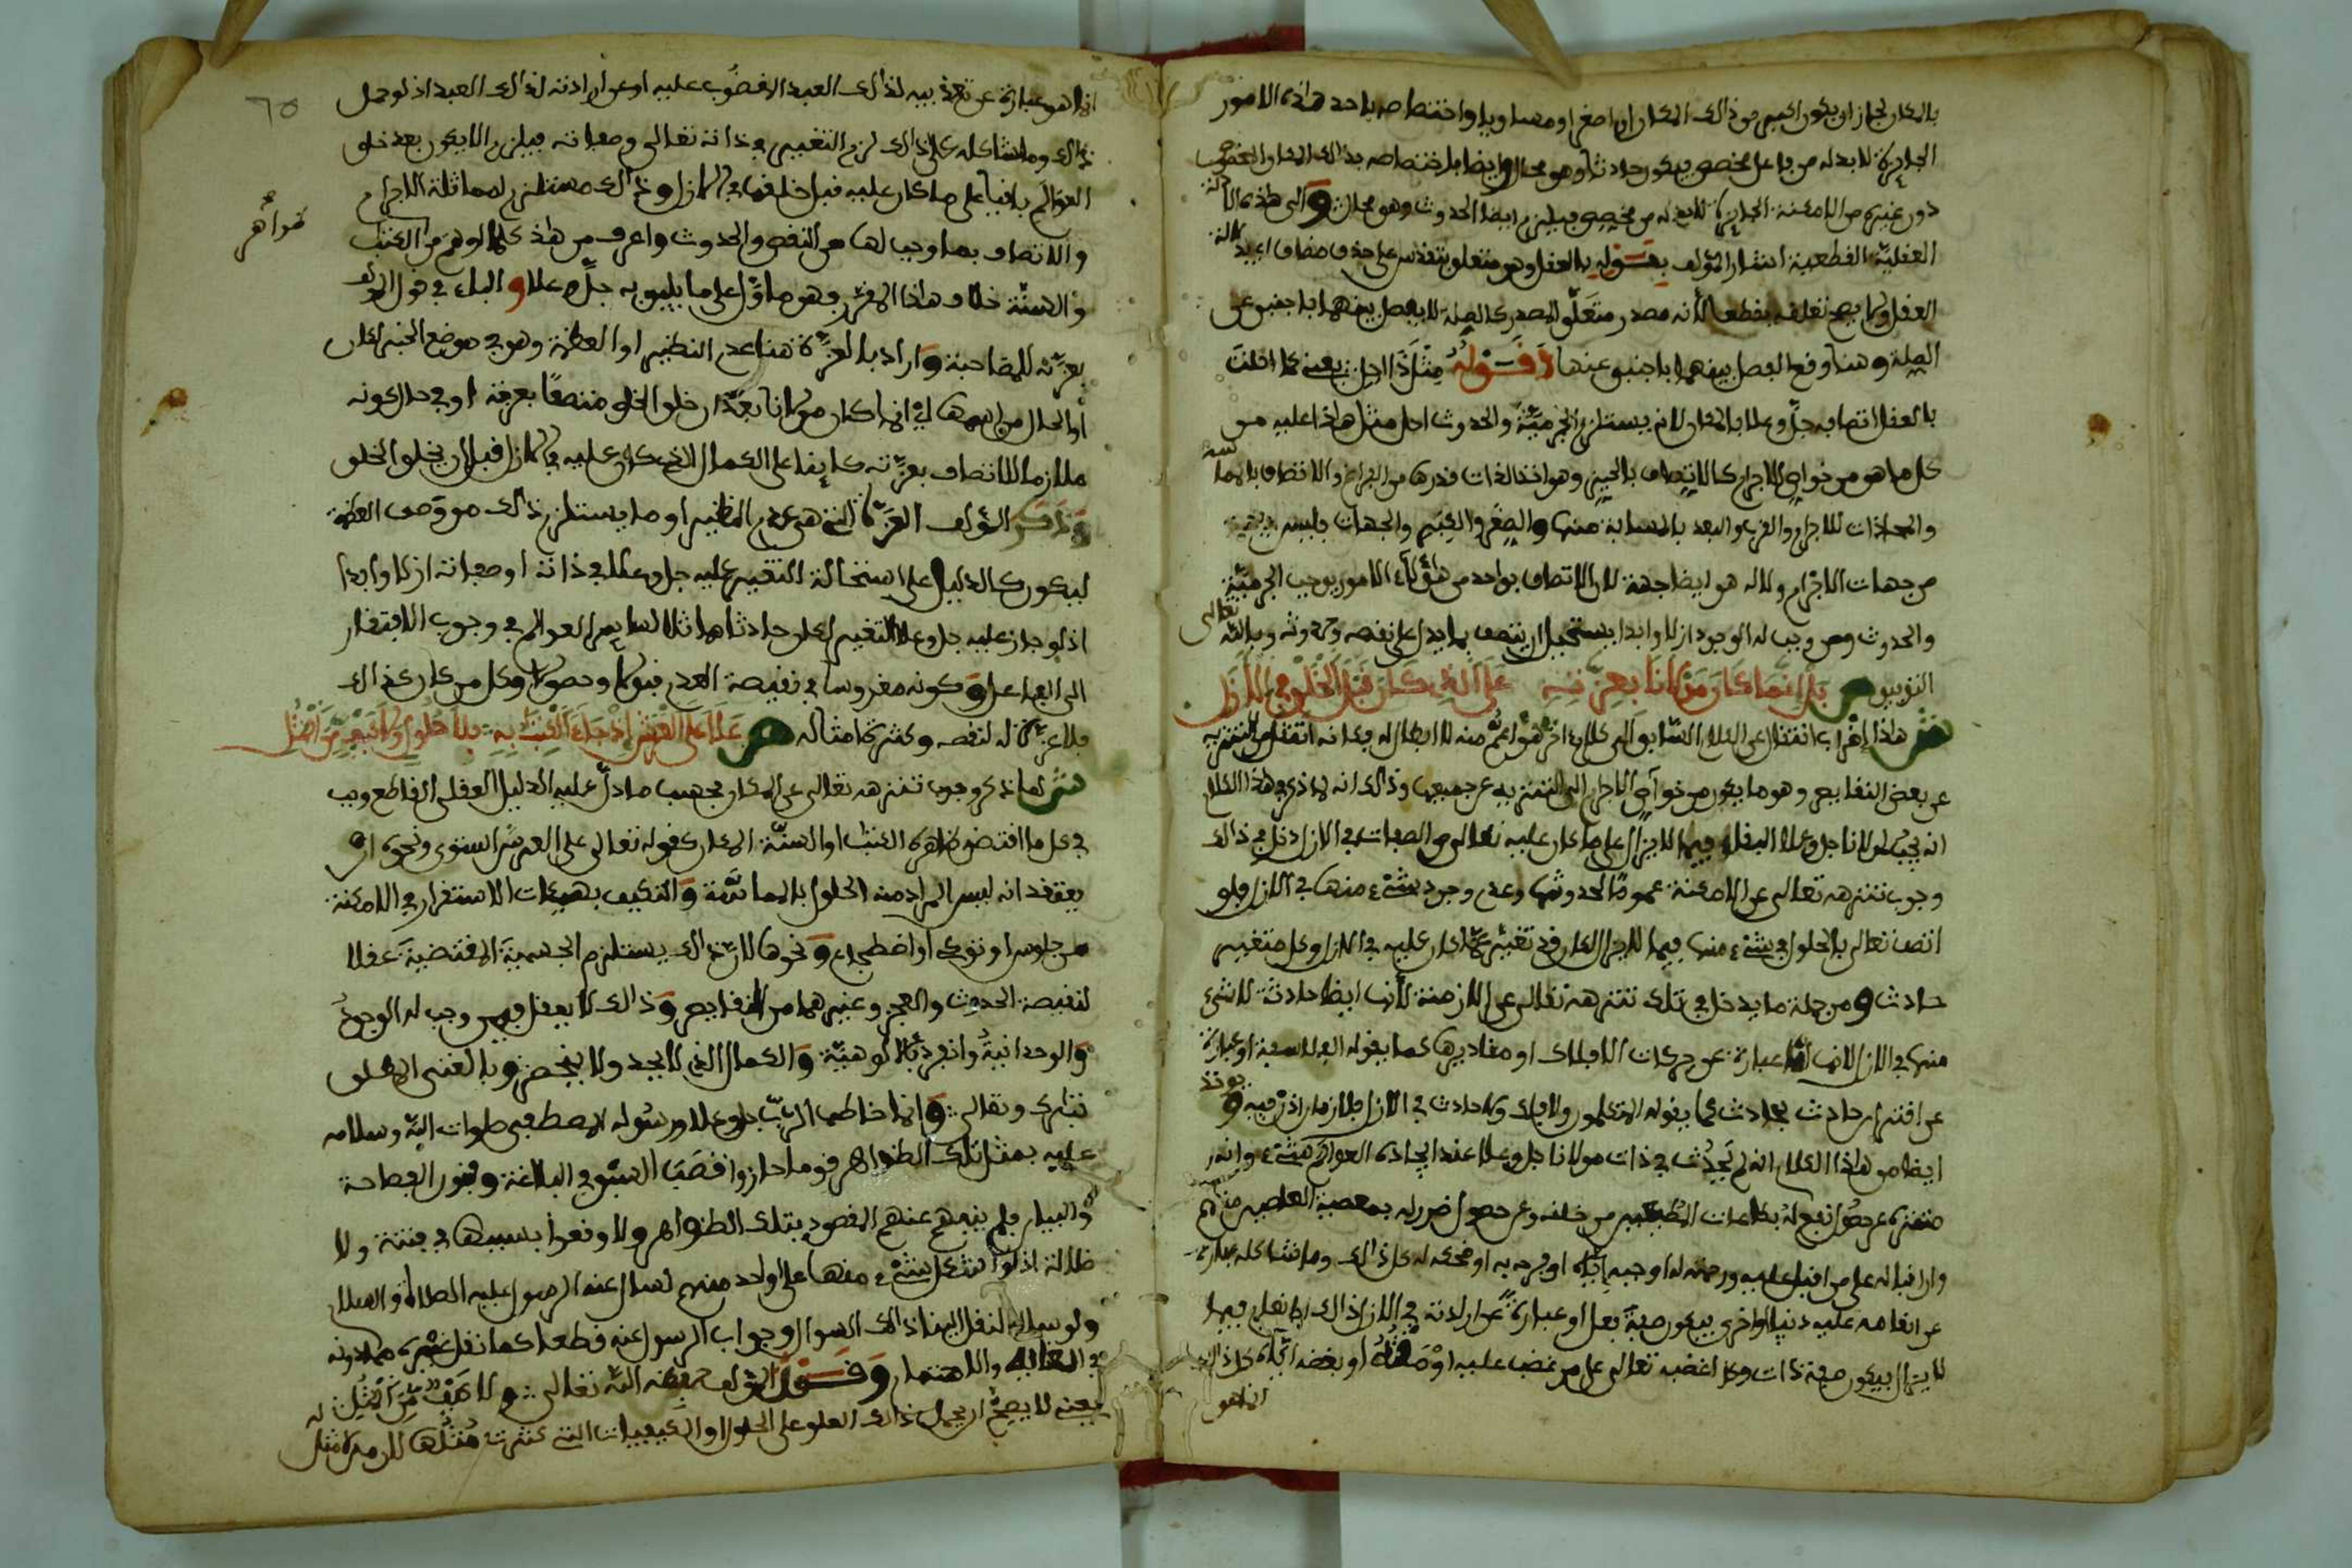 بالمكان لجاز ان يكون اكبر من ذلك المكان او اصغر او مساويا واختصاصه باحد هذه الامور
الجايزة لا بد له من فاعل مخصص فيكون حادثا وهو محال وايضا باختصاصه بذلك المكان المخصوص
دون غيره من الامكنة الجايزة لا بد له من مخصص فيلزم ايضا الحدوث وهو محال والى هذه الادلة
العقلية القطعية اشار المؤلف بقوله بالعقل وهو متعلق بتقدس على حذف مضاف اي بدلالة
العقل ولا يصح تعلقه بقطعا لانه مصدر متعلق المصدر كالصلة لا يفصل بينهما باجنبي عن
الصلة وهنا وقع الفصل بينهما باجنبي عنها وقوله مثل ذا اجلن يعني كما احلت
بالعقل اتصافه جل وعلا بالمكان لانه يستلزم الجرمية والحدوث احل مثل هذا عليه من
كل ما هو من خواص الاجرام كالاتصاف بالحيز وهو اخذ الذات قدرها من الفراغ والاتصاف بالمماسة
والمحاذات للاجرام والقرب والبعد بالمسافة منها والصغر والكبر والجهات فليس في جهة
من جهات الاجرام ولا له هو ايضا جهة لان الاتصاف بواحد من هؤلاء الامور يوجب الجرمية
والحدوث ومن وجب له الوجود ازلا وابدا يستحيل ان يتصف بما يدل على نقصه وحدوثه وبالله تعالى
التوفيق ص بل انما كان مولانا بعزته على الذي كان قبل الخلق في الازل
ش هذا اضراب انتقال عن الكلام السابق الى كلام اخر هو اعم منه لا ابطال له فكانه انتقل من التنزيه
عن بعض النقايص وهو ما يكون من خواص الاجرام الى التنزيه عن جميعها وذلك انه لما ذكر في هذا الكلام
انه يجب لمولانا جل وعلا البقاء فيما لا يزال على ما كان عليه تعالى من الصفات في الازل دخل في ذلك
وجوب تنزهه تعالى عن الامكنة عموما لحدوثها وعدم وجود شيء منها في الازل فلو
اتصف تعالى بالحلول في شيء منها فيما لا يزال لكان قد تغير عما كان عليه في الازل وكل متغير
حادث ومن جملة ما يدخل في ذلك تنزهه تعالى عن الازمنة لانها ايضا حادثة لا شيء
منها في الازل لانها اما عبارة عن حركات الافلاك او مقاديرها كما يقوله الفلاسفة او عبارة
عن اقتران حادث بحادث كما يقوله المتكلمون ولا فلك ولا حادث في الازل فلا زمان اذن فيه ويوخذ
ايضا من هذا الكلام انه لم يحدث في ذات مولانا جل وعلا عند ايجاده العوالم شيء وانه
متنزه عن حصول نفع له بطاعات المطيعين من خلقه وعن حصول ضرر له بمعصية العاصين منهم
وان اقباله على من اقبل عليه ورحمته له او حبه اياه او فرحه به او ضحكه له كل ذلك وما شاكله عبارة
عن انعامه عليه دنيا واخرى فيكون صفة فعل او عبارة عن ارادته في الازل ذلك الانعام فيما
لا يزال فيكون صفة ذات وكذا غضبه تعالى على من غضب عليه او مقته او بغضه اياه كل ذلك
انما هو
٦٥
انما هو عبارة عن تعذيبه لذلك العبد المغضوب عليه او عن ارادته لذلك العبد اذ لو حمل
ذلك وما شاكله على ذلك لزم التغيير في ذاته تعالى وصفاته فيلزم الا يكون بعد خلق
العوالم باقيا على ما كان عليه قبل خلقها في الازل وذلك مستلزم لمماثلة الاجرام
والاتصاف بما وجب لها من النقص والحدوث واعرف من هذا كلما اوهم من الكتاب
ظواهر
والسنة خلاف هذا المقرر وهو ماول على ما يليق به جل وعلا والباء في قول المؤلف
بعزته للمصاحبة واراد بالعزة هنا عدم النظير او العظمة وهو في موضع الخبر لكان
او الحال من اسمها اي انما كان مولانا بعد ان خلق الخلق متصفا بعزته او في حال كونه
ملازما للاتصاف بعزته كايفا على الكمال الذي كان عليه في الازل قبل ان يخلق الخلق
وذكر المؤلف العزة التي هي عدم النظير او ما يستلزم ذلك من وصف العظمة
ليكون كالدليل على استحالة التغير عليه جل وعلا في ذاته او صفاته ازلا وابدا
اذ لو جاز عليه جل وعلا التغير لكان حادثا مماثلا لساير العوالم في وجوب الافتقار
الى الفاعل وكونه مغروسا في نقيصة العدم قبولا وحصولا وكل من كان كذلك
فلا عزة له لنقصه وكثرة امثاله ص علا على العرش اذ جاء الكتاب به بلا حلول ولا كيف من امثل
ش لما ذكر وجوب تنزهه تعالى عن المكان بحسب ما دل عليه الدليل العقلي القاطع وجب
في كل ما اقتضى ظاهره الكتاب او السنة المكان كقوله تعالى على العرش استوى ونحوه ان
يعتقد انه ليس المراد منه الحلول بالمماسة والتكيف بهيئات الاستقرار في الامكنة
من جلوس او توكي او اضطجاع ونحوها لان ذلك يستلزم الجسمية المقتضية عقلا
لنقيصة الحدوث والعجز وغيرهما من النقايص وذلك لا يعقل فيمن وجب له الوجود
والوحدانية وانفرد بالالوهية والكمال الذي لا يحد ولا ينحصر وبالغنى المطلق
تبارك وتعالى وانما خاطب الرب جل وعلا ورسوله المصطفى صلوات الله وسلامه
عليه بمثل تلك الظواهر قوما حازوا قصب السبق في البلاغة وفنون الفصاحة
والبيان فلم يبهم عنهم المقصود بتلك الظواهر ولا وقعوا بسببها في فتنة ولا
ضلالة اذ لو اشكل شيء منها على واحد منهم لسال عنه الرسول عليه الصلاة والسلام
ولو سال لنقل الينا ذلك السوال وجواب الرسول عنه قطعا كما نقل غيره مما دونه
في الغاية والاهتمام وقول المؤلف رحمه الله تعالى ولا كيف من امثل
يعني لا يصح ان يحمل ذلك العلو على الحلول او الكيفيات التي كثرت مثلها لان من لا مثل له